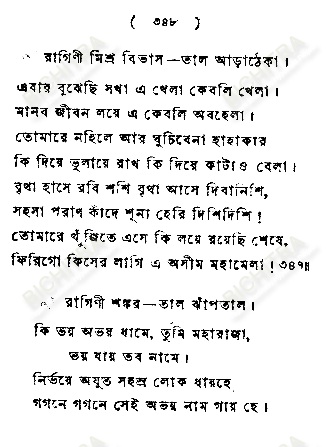 ( ৩৪৮ )
রাগিণী মিশ্র বিভাস—তাল আড়াঠেকা।
এবার বুঝেছি সখা এ খেলা কেবলি খেলা।
মানব জীবন লয়ে এ কেবলি অবহেলা।
তোমারে নহিলে আর ঘুচিবেনা হাহাকার
কি দিয়ে ভুলায়ে রাখ কি দিয়ে কাটাও বেলা।
বৃথা হাসে রবি শশি বৃথা আসে দিবানিশি,
সহসা পরাণ কাঁদে শূন্য হেরি দিশিদিশি!
তোমারে খুঁজিতে এসে কি লয়ে রয়েছি শেষে,
ফিরিগো কিসের লাগি এ অসীম মহামেলা! ৩৪৭॥
রাগিণী শঙ্কর—তাল ঝাঁপতাল।
কি ভয় অভয় ধামে, তুমি মহারাজা,
ভয় যায় তব নামে।
নির্ভয়ে অযুত সহস্র লোক ধায়হে
গগনে গগনে সেই অভয় নাম গায় হে।